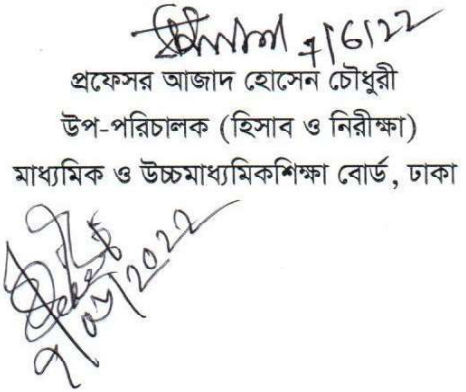 ৭/6/22
প্রফেসর আজাদ হোসেন চৌধুরী
উপ-পরিচালক (হিসাব ও নিরীক্ষা)
মাধ্যমিক ও উচ্চমাধ্যমিকশিক্ষা বোর্ড, ঢাকা
৭/০৬/2022